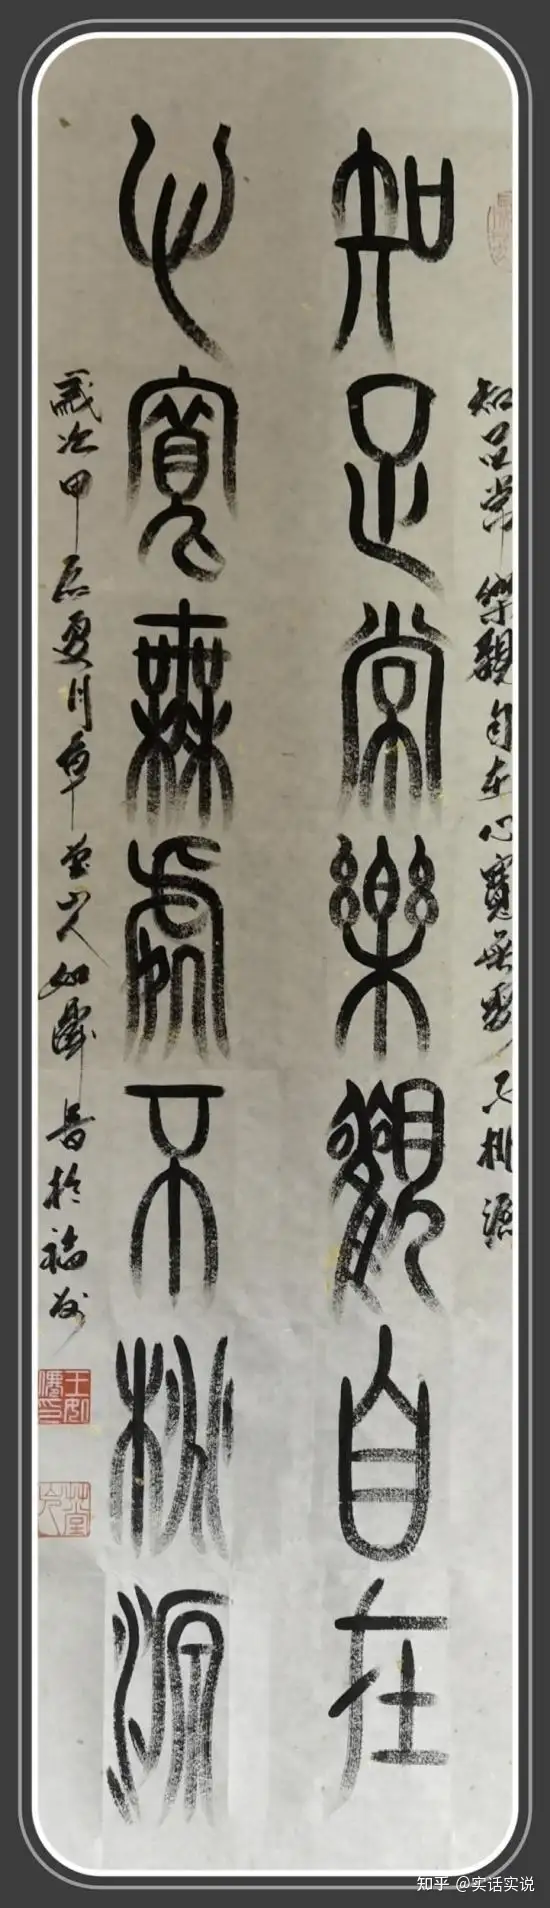 知足常樂觀自在
心寬無處不桃源
知足常樂觀自在心寬無處不桃源
歲次甲辰夏月草堂山人如潛書於福州
知乎 @实话实说